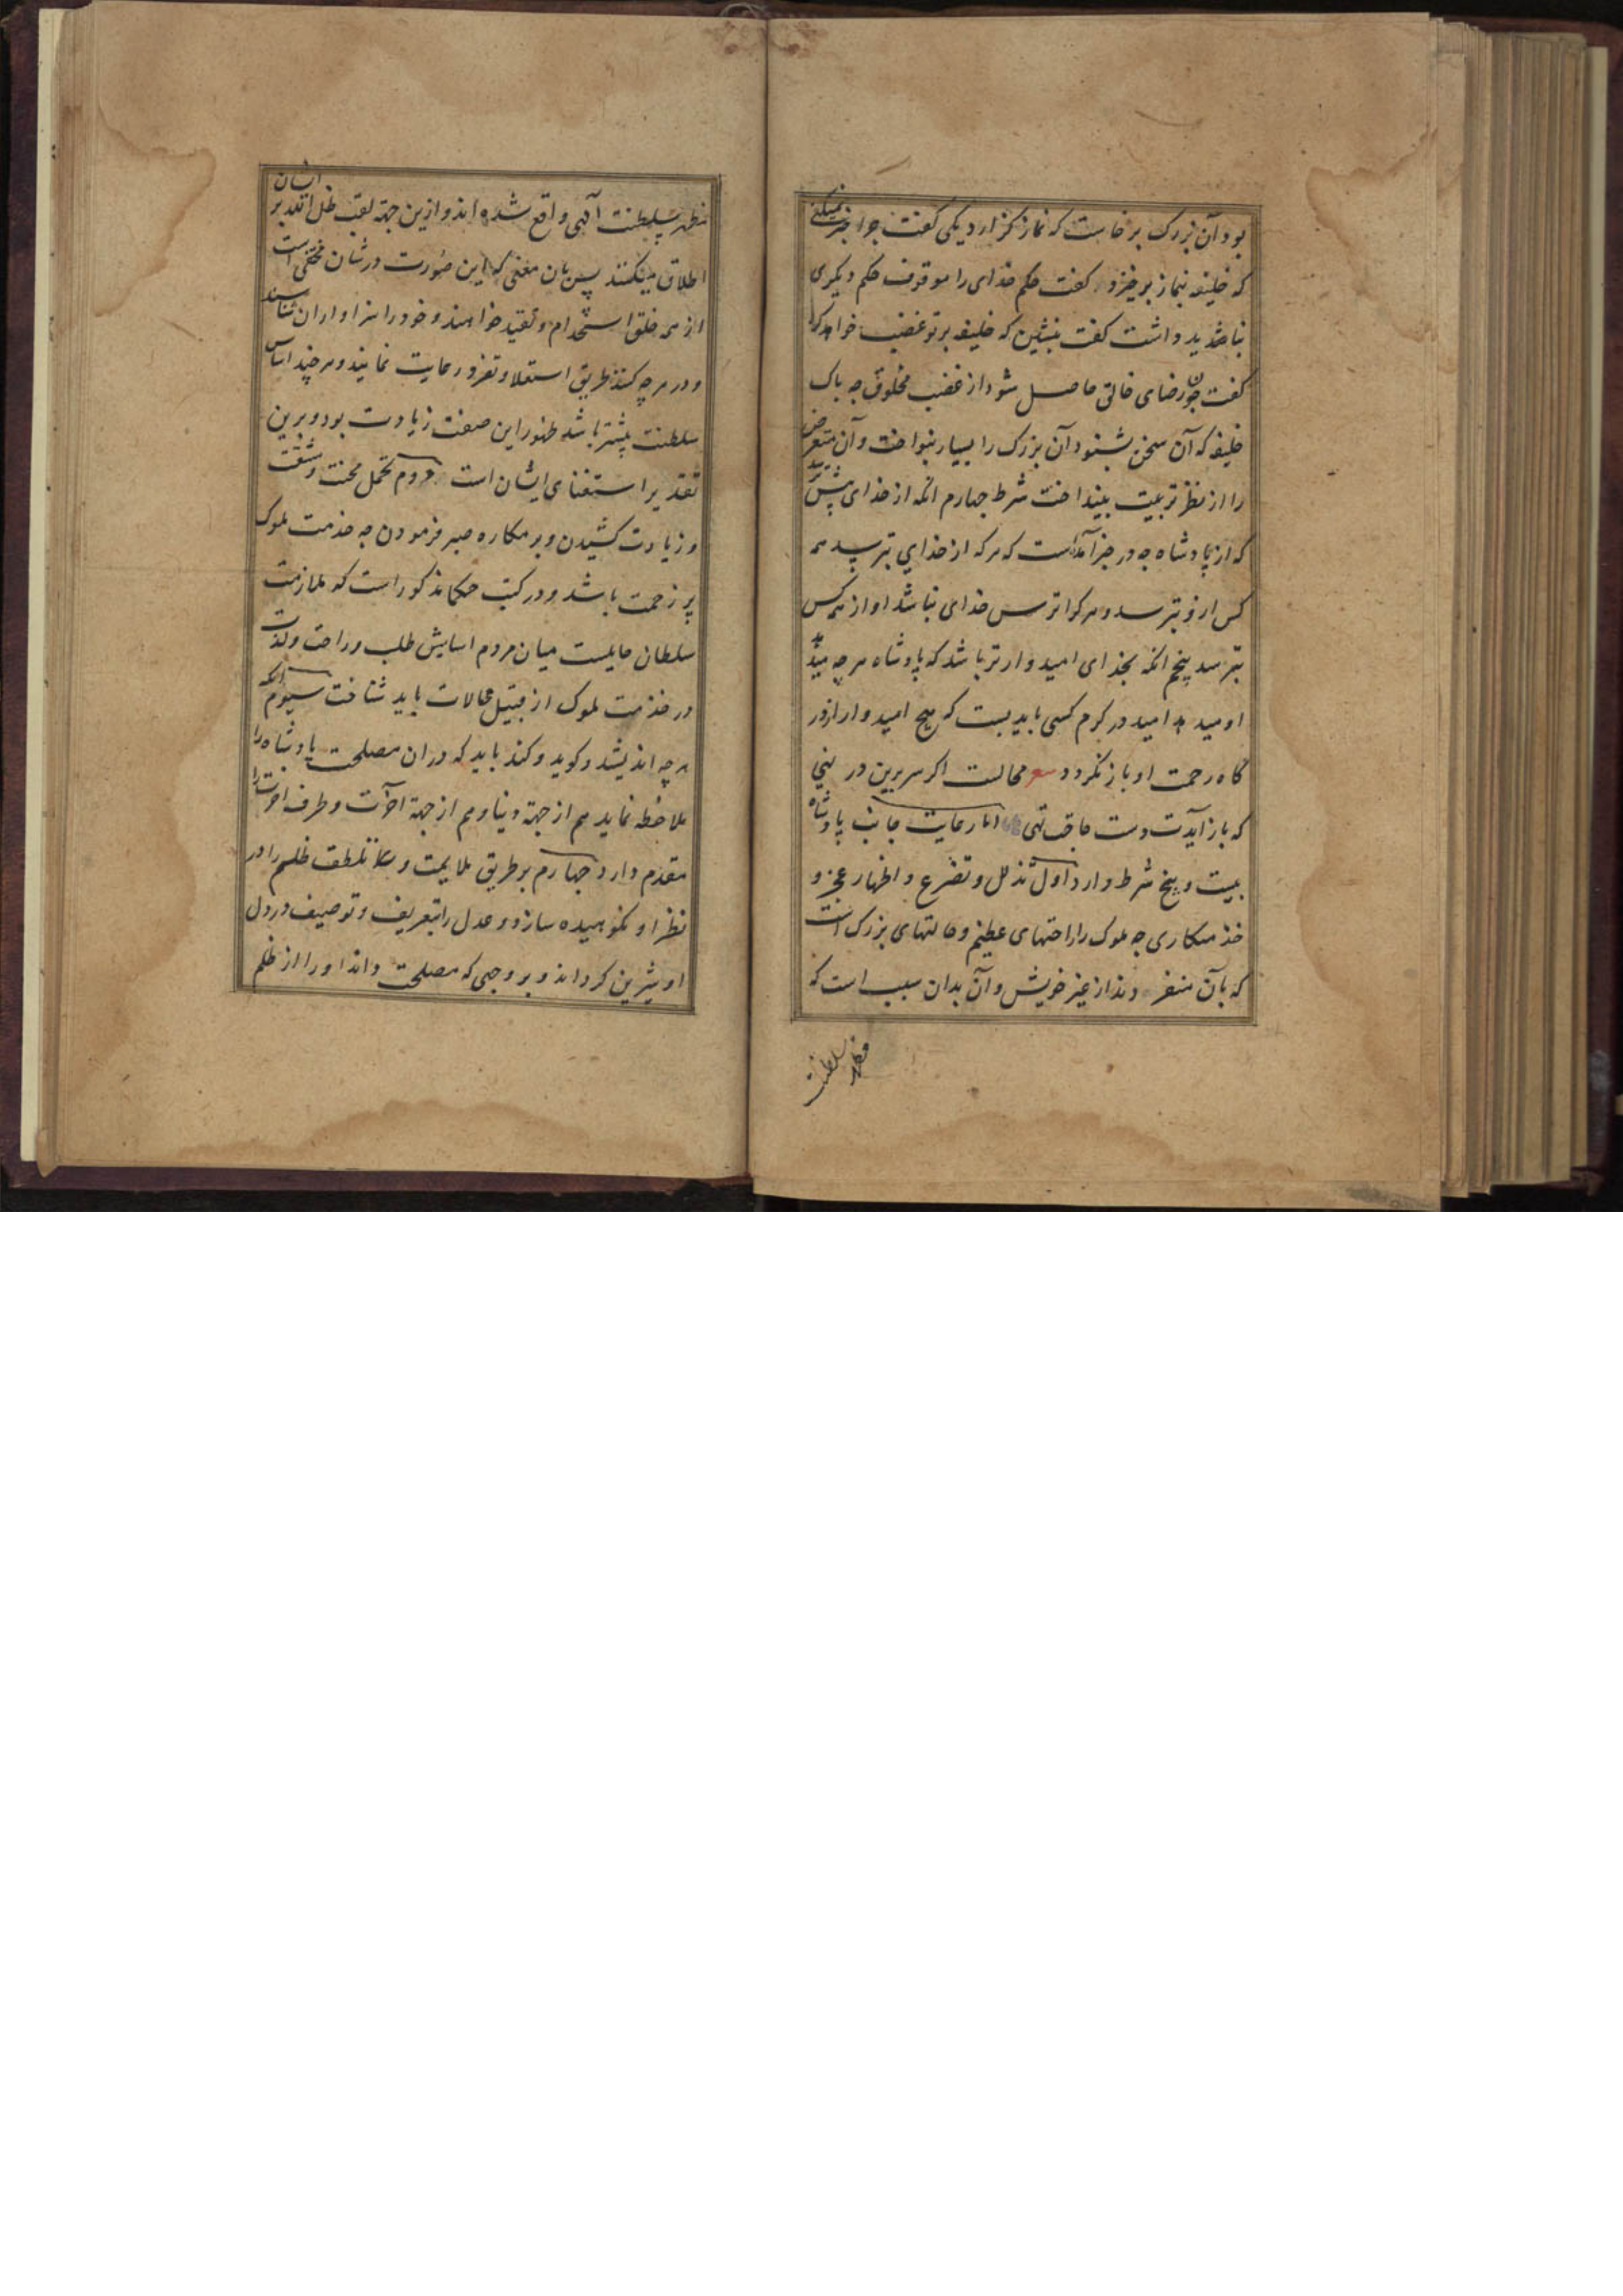 بود آن بزرگ برخاست که نماز گزارد یکی گفت چرا صبر نمیکنی
که خلیفه بنماز برخیزد گفت حکم خدای را موقوف حکم دیگری
نباید داشت گفت بنشین که خلیفه بر تو غضب خواهد کرد
گفت چون رضای خالق حاصل شود از غضب مخلوق چه باک
خلیفه که آن سخن بشنود آن بزرگ را بسیار بنواخت و آن متعرض
را از نظر تربیت بینداخت شرط چهارم آنکه از خدای بیش ترسد
که از پادشاه چه در خبر آمده است که هر که از خدای بترسد همه
کس ازو بترسد و هر کرا ترس خدای نباشد او از همه کس
بترسد پنجم آنکه بخدای امیدوارتر باشد که پادشاه هر چه
امید در کرم کسی باید بست که هیچ امیدوار از در
گاه رحمت او باز نگردد شعر محالست اگر سر برین در نهی
که باز آیدت دست حاجت تهی اما رعایت جانب پادشاه
بیست و پنج شرط دارد اول تذلل و تضرع و اظهار عجز و
خدمتکاری چه ملوک را راحتهای عظیم و حالتهای بزرگ است
که بآن منفردند از غیر خویش و آن بدان سبب است که
مظهر سلطنت
مظهر سلطنت آلهی واقع شده اند و ازین جهة لقب ظل الله بر ایشان
اطلاق میکنند پس بآن معنی که این صورت در شان محقق است
از همه خلق استخدام و تقید خواهند و خود را سزاوار آن شناسند
و در هر چه کنند طریق استعلا و تفرد رعایت نمایند و هر چند اساس
سلطنت بیشتر باشد ظهور این صفت زیادت بود و برین
تقدیر استغنای ایشان است دوم تحمل محنت و مشقت
و زیادت کشیدن و بر مکاره صبر فرمودن چه خدمت ملوک
پر زحمت باشد و در کتب حکما مذکور است که ملازمت
سلطان حایلست میان مردم اسایش طلب و راحت و لذت
در خدمت ملوک از قبیل محالات باید شناخت سیوم آنکه
هر چه اندیشد و گوید و کند باید که در آن مصلحت پادشاه را
ملاحظه نماید هم از جهة دنیا و هم از جهة آخرت و طرف آخرت را
مقدم دارد چهارم بر طریق ملایمت و تلطف ظلم را در
نظر او نکوهیده سازد و عدل را بتعریف و توصیف در دل
او شیرین گرداند و بر وجهی که مصلحت داند او را از ظلم